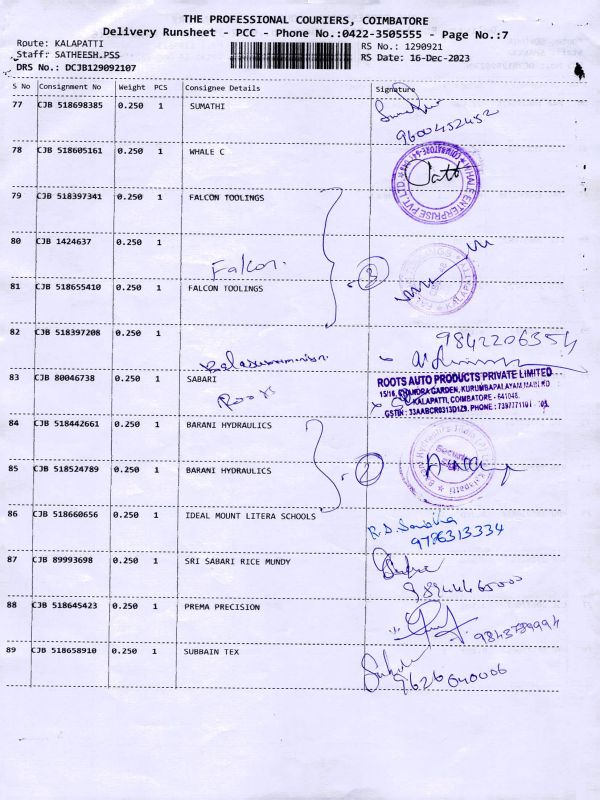 THE PROFESSIONAL COURIERS, COIMBATORE
Delivery Runsheet - PCC - Phone No.:0422-3505555 - Page No.:7
Route: KALAPATTI
RS No.: 1290921
Staff: SATHEESH.PSS
RS Date: 16-Dec-2023
DRS No.: DCJB129092107
S No Consignment No Weight PCS Consignee Details Signature
77 CJB 518698385 0.250 1 SUMATHI
9600452452
78 CJB 518605161 0.250 1 WHALE C
WHALE ENTERPRISE PVT. LTD
79 CJB 518397341 0.250 1 FALCON TOOLINGS
80 CJB 1424637 0.250 1
Falcon.
3
81 CJB 518655410 0.250 1 FALCON TOOLINGS
82 CJB 518397208 0.250 1
9842206354
83 CJB 80046738 0.250 1 SABARI
Roots
ROOTS AUTO PRODUCTS PRIVATE LIMITED
15/16, CHANDRA GARDEN, KURUMBAPALAYAM MAIN RD
KALAPATTI, COIMBATORE - 641048.
84 CJB 518442661 0.250 1 BARANI HYDRAULICS
Security
85 CJB 518524789 0.250 1 BARANI HYDRAULICS
2
86 CJB 518660656 0.250 1 IDEAL MOUNT LITERA SCHOOLS
9786313334
87 CJB 89993698 0.250 1 SRI SABARI RICE MUNDY
88 CJB 518645423 0.250 1 PREMA PRECISION
89 CJB 518658910 0.250 1 SUBBAIN TEX
9626040006